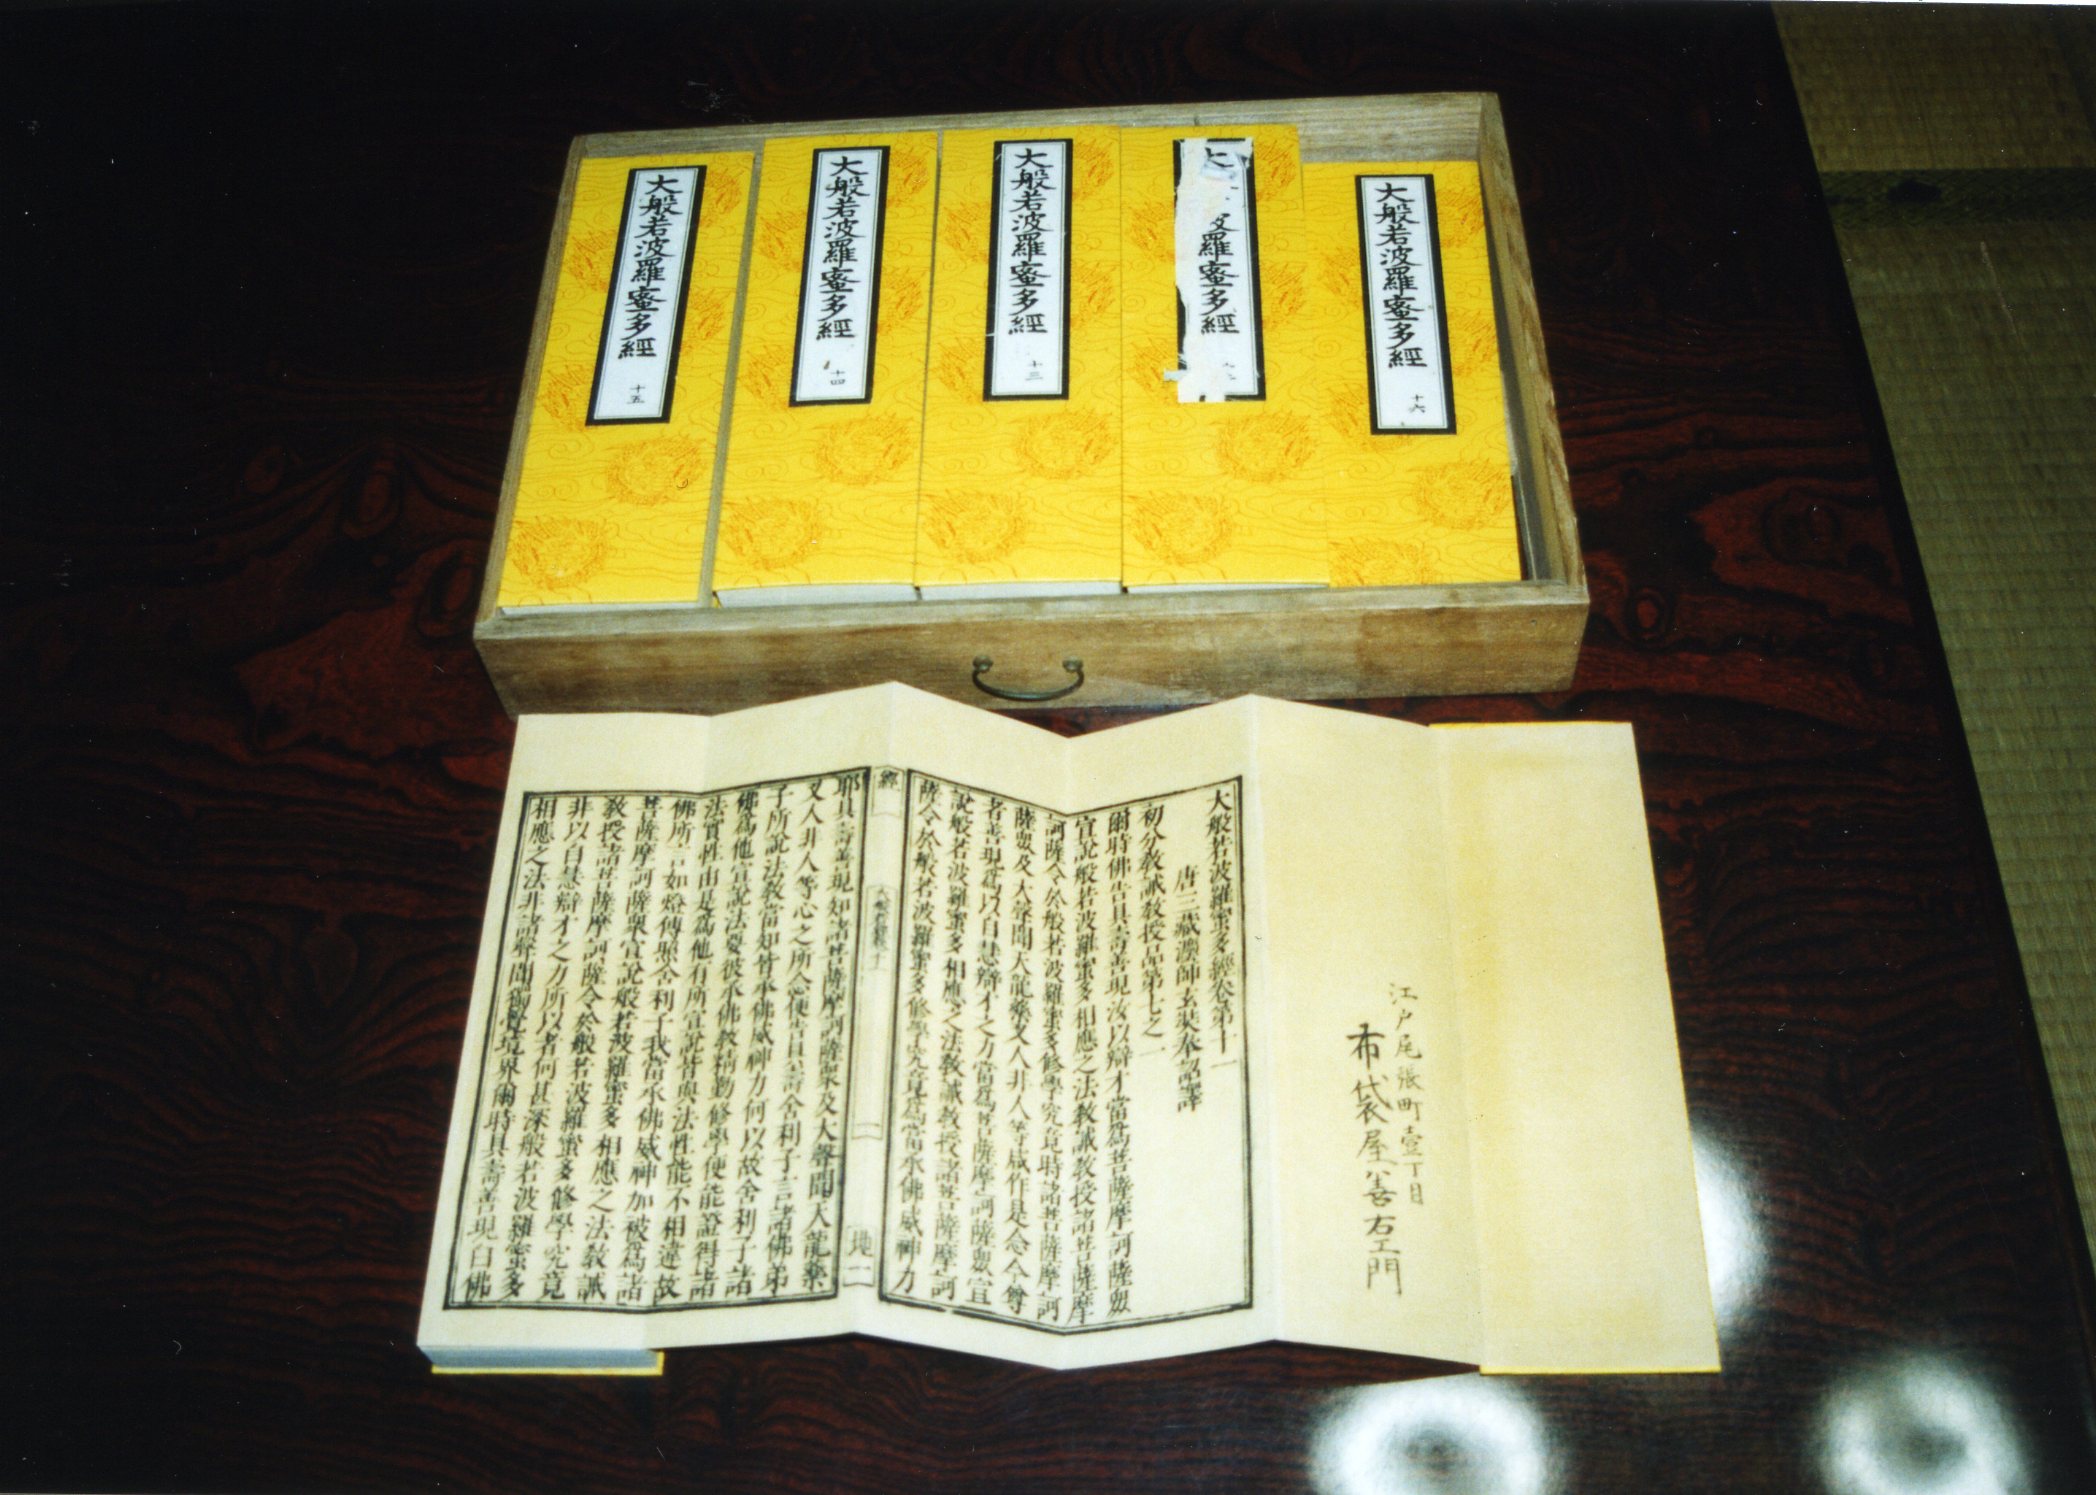 大般若波羅蜜多經
十六
大
羅蜜多經
大般若波羅蜜多經
十三
大般若波羅蜜多經
十四
大般若波羅蜜多經
十五
江戸尾張町壹丁目
布袋屋善右エ門
大般若波羅蜜多經卷第十一
唐三藏灋師玄奘奉詔譯
初分敎誡敎授品第七之一
爾時佛告具壽善現汝以辯才當爲菩薩摩訶薩衆
宣說般若波羅蜜多相應之法敎誡敎授諸菩薩摩
訶薩令於般若波羅蜜多修學究竟時諸菩薩摩訶
薩衆及大聲聞天龍藥叉人非人等咸作是念今尊
者善現爲以自慧辯才之力當爲菩薩摩訶薩衆宣
說般若波羅蜜多相應之法敎誡敎授諸菩薩摩訶
薩令於般若波羅蜜多修學究竟爲當承佛威神力
經
地一
耶具壽善現知諸菩薩摩訶薩衆及大聲聞天龍藥
叉人非人等心之所念便告具壽舍利子言諸佛弟
子所說法敎當知皆承佛威神力何以故舍利子諸
佛爲他宣說法要彼承佛敎精勤修學便能證得諸
法實性由是爲他有所宣說皆與法性能不相違故
佛所言如燈傳照舍利子我當承佛威神加被爲諸
菩薩摩訶薩衆宣說般若波羅蜜多相應之法敎誡
敎授諸菩薩摩訶薩令於般若波羅蜜多修學究竟
非以自慧辯才之力所以者何甚深般若波羅蜜多
相應之法非諸聲聞獨覺境界爾時具壽善現白佛